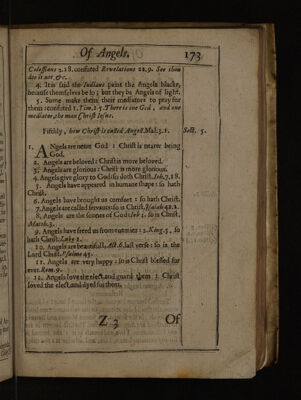 Of Angels. 173
Colossians 2.18. confuted Revelations 22.9. See thou
doe it not, &c.
4. It is said the Indians paint the Angels blacke,
because themselves be so; but they be Angels of light.
5. Some make them their mediators to pray for
them: confuted 1. Tim. 2.5. There is one God, and one
mediator, the man Christ Iesus.
Fifthly, how Christ is called Angel Mal. 3.1. Sect. 5.
1. ANgels are neere God: Christ is nearer being
God.
2. Angels are beloved: Christ is more beloved.
3. Angels are glorious: Christ is more glorious.
4. Angels give glory to God: so doth Christ. Joh. 7.18.
5. Angels have appeared in humane shape: so hath
Christ.
6. Angels have brought us comfort: so hath Christ.
7. Angels are called servants: so is Christ. Isaiah 42.1.
8. Angels are the sonnes of God: Job 1. so is Christ.
Math. 3.
9. Angels have freed us from enemies: 2. King. 5, so
hath Christ. Luke 1.
10. Angels are beautifull, Act. 6. last verse: so is the
Lord Christ. Psalme 45.
11. Angels are very happy: so is Christ blessed for
ever. Rom. 9.
12. Angels love the elect, and guard them: Christ
loved the elect, and dyed for them.
Z 3 Of